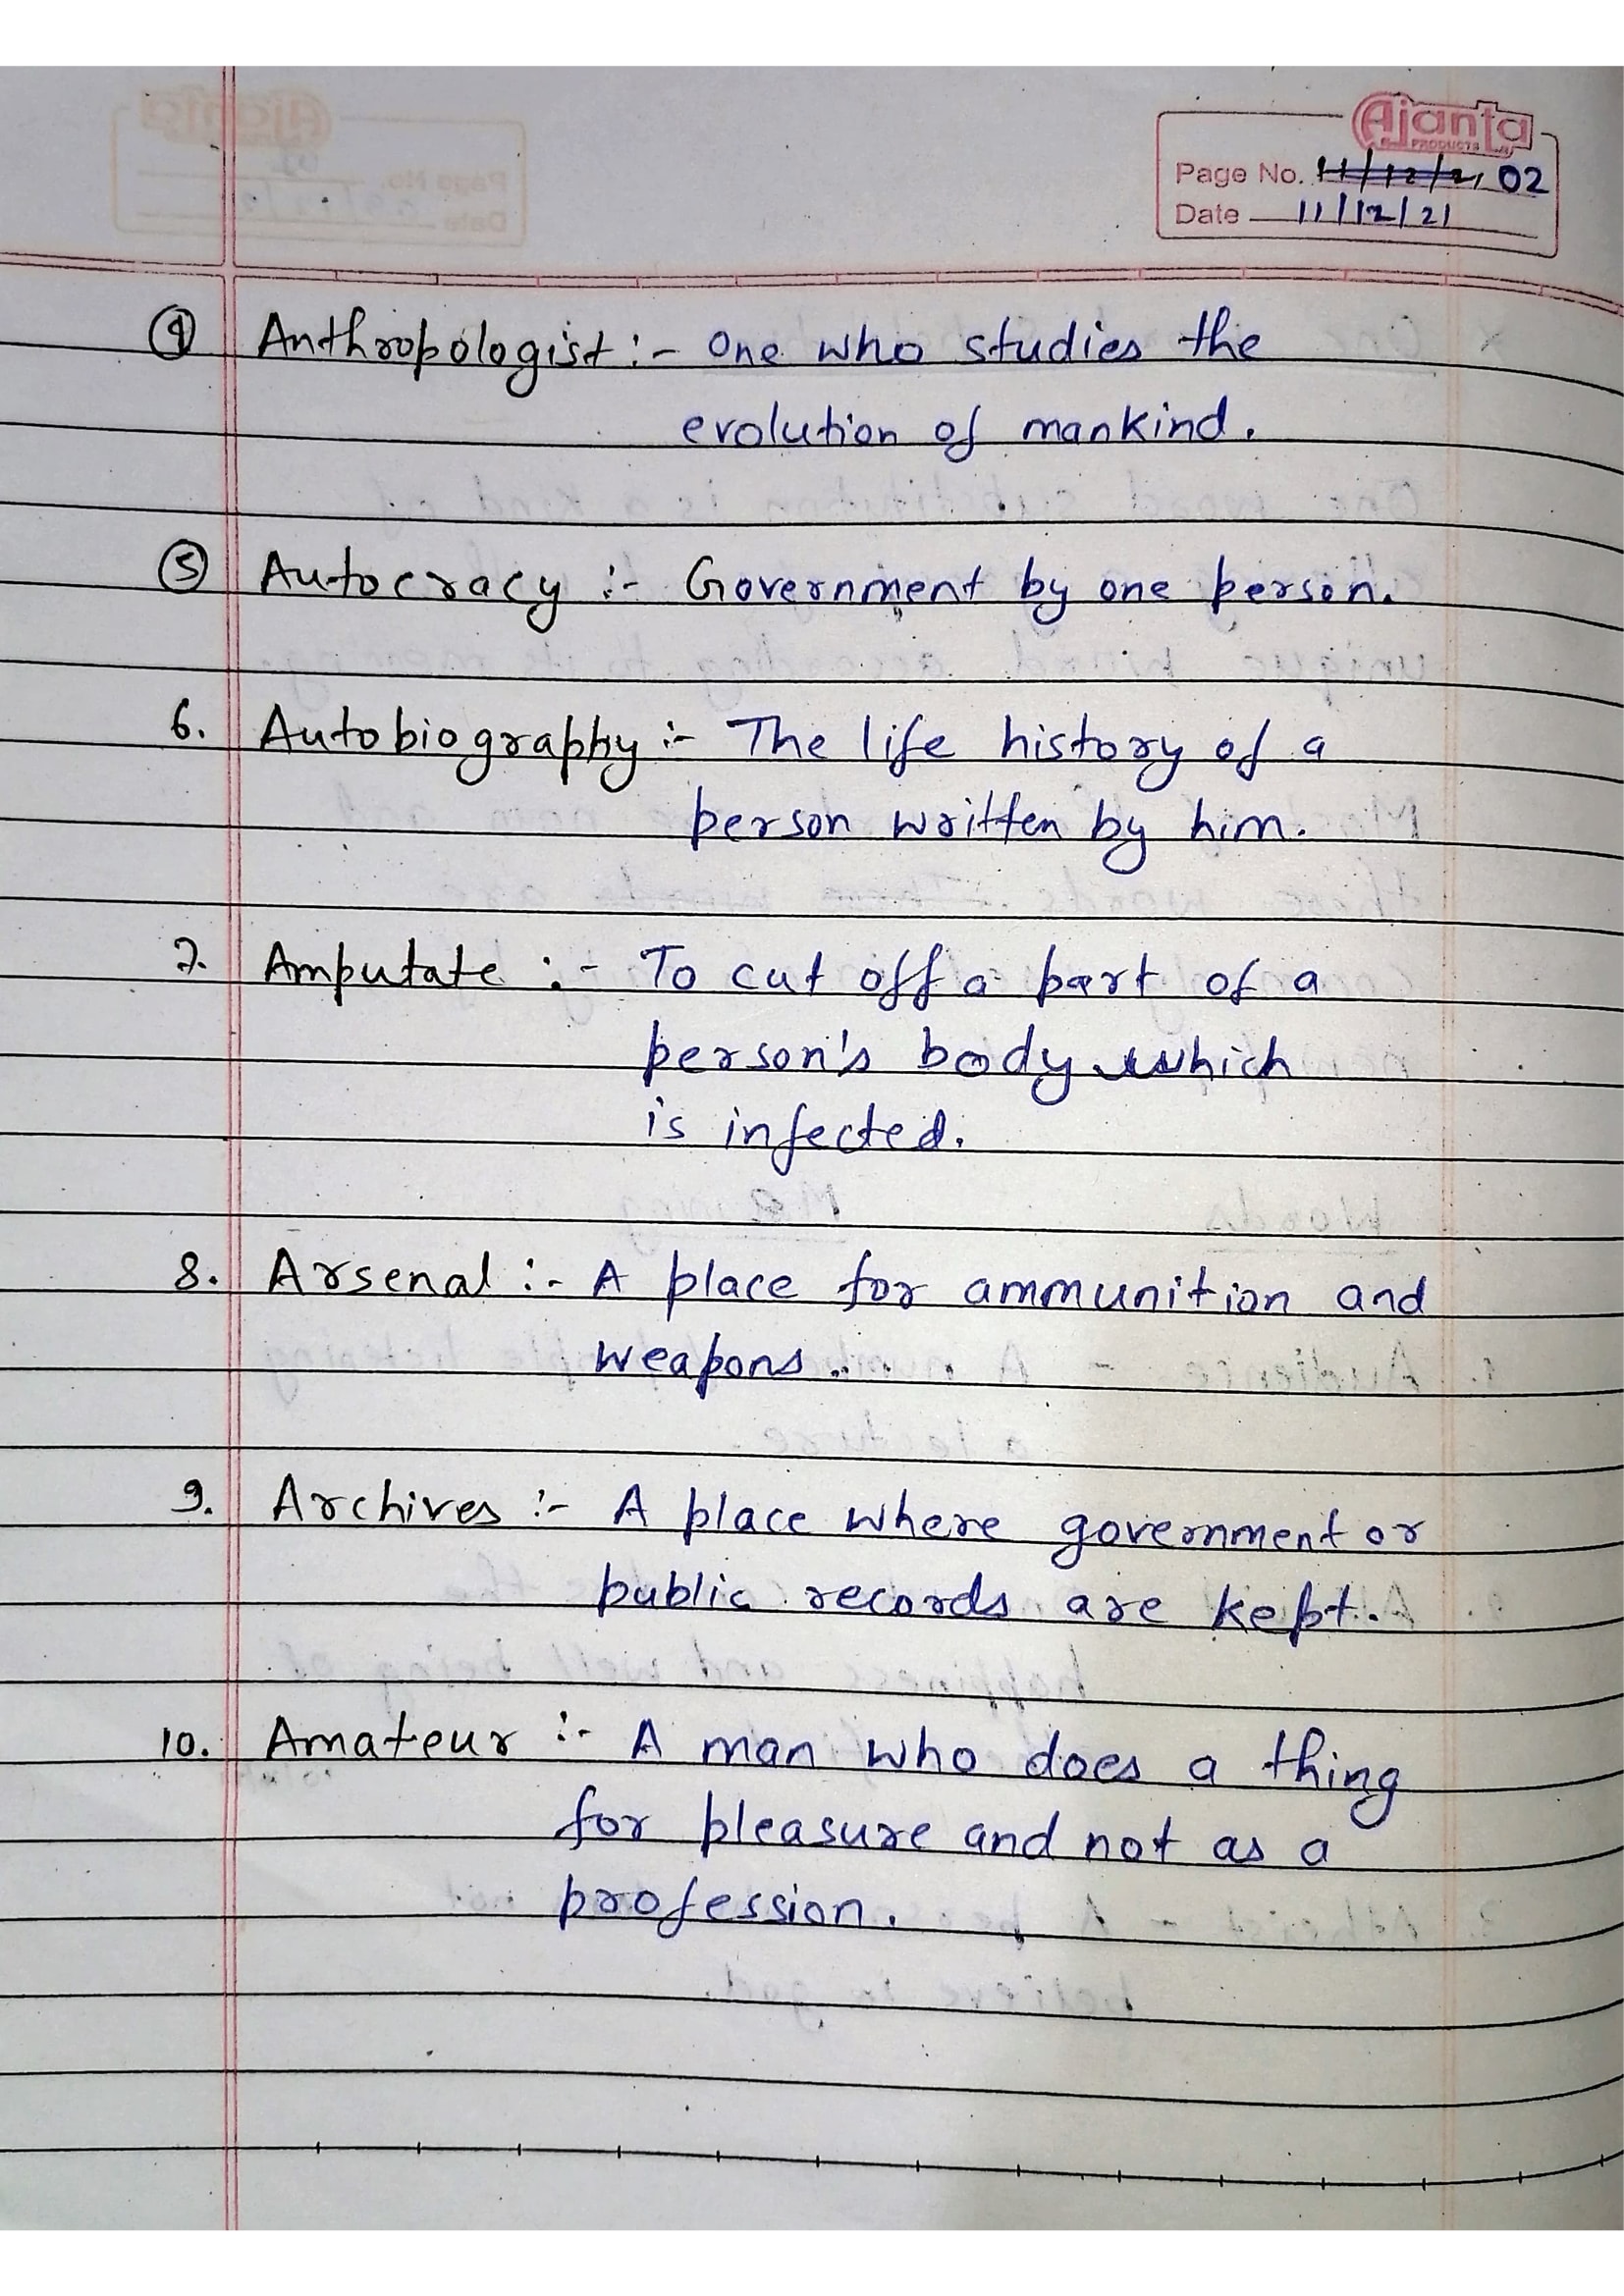 Ajanta
PRODUCTS
Page No. 11/12/21 02
Date 11/12/21
④ Anthropologist :- One who studies the
evolution of mankind.
⑤ Autocracy :- Government by one person.
6. Autobiography :- The life history of a
person written by him.
7. Amputate :- To cut off a part of a
person's body which
is infected.
8. Arsenal :- A place for ammunition and
weapons.
9. Archives :- A place where government or
public records are kept.
10. Amateur :- A man who does a thing
for pleasure and not as a
profession.